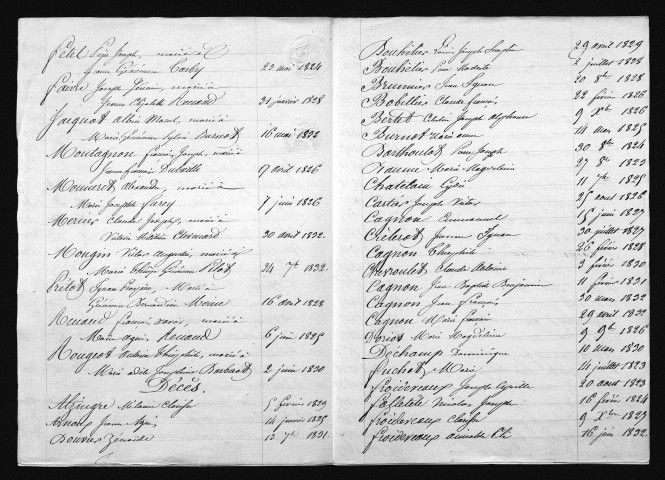 Petet Pierre Joseph, marié à
Jeanne Génereuse Corby 23 mai 1824
Faivre Joseph Firmin, marié à
Jeanne Elisabeth Renaud 31 janvier 1828
Jacquot Albin Manuel, marié à
Marie Génereuse Sylvie Burnot 16 mai 1832
Montagnon François Joseph, marié à
Jeanne Françoise Duboille 9 avril 1826
Monneret Alexandre, marié à
Marie Josephe Farey 7 juin 1826
Mercier Claude Joseph, marié à
Clerouard 30 avril 1832.
Mougin Victor Augustin, marié à
Marie Thérèse Génereuse Pilot 24 7bre 1832.
Prétot Ignace Prospère, Marié à
Génereuse Monnie 16 avril 1828
Renaud François Xavier, marié à
Marie Agnès Renaud 6 juin 1825
Rougeot Théophile, marié à
Marie Adèle Joséphine Barbard 2 juin 1830
Décès.
Alzingre Mélanie Clarisse 5 février 1829
Arnoux Jeanne Agnès 14 janvier 1825
Bouvier Zénaïde 13 7bre 1831.
Bouhélier Joseph Seraphin 29 avril 1829
Bouhélier 2 juillet 1828
Brunnier Jean Ignace 20 8bre 1828
Bobillier Claude François 22 février 1826
Bertet Célestin Joseph Alphonse 9 Xbre 1826
Burnot Marie anne 14 mars 1825
Barthoulot Pierre Joseph 30 8bre 1824
Jeaume Marie Magdeleine 27 8bre 1823
Chatelain 11 7bre 1825
Cartier Joseph Victor 25 août 1826
Cagnon Emmanuel 15 juin 1827
Clèlerot Ignace 30 juillet 1827
Cagnon Théophile 26 février 1828
Chevroulet Claude Antoine 3 février 1830
Cagnon Jean Baptiste Benjamin 11 février 1831
Cagnon Jean François 30 mars 1832
Cagnon Marie 29 avril 1832
Doriot Marie Magdeleine 9 9bre 1826
Dechamp Dominique 10 mars 1830
Fuchot Marie 14 juillet 1823
Froidevaux Joseph Cyrille 20 avril 1823
Folletête Nicolas Joseph 16 février 1824
Froidevaux Clarisse 9 Xbre 1827
Froidevaux aimable Eli 16 juin 1832.